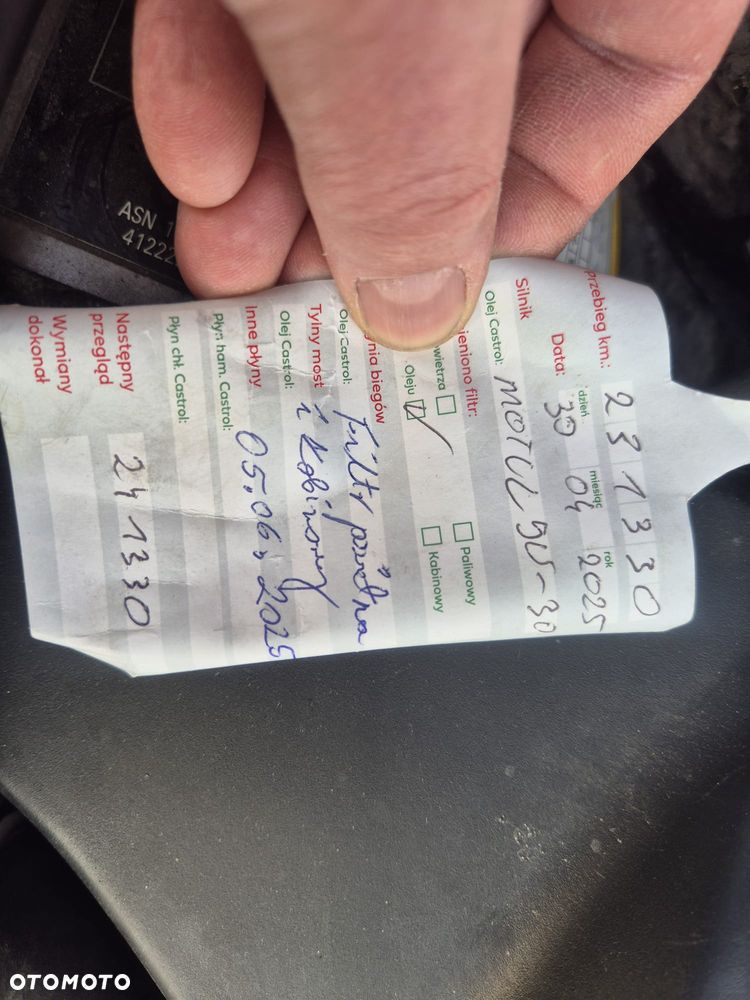 Przebieg km.: 231330
dzień miesiąc rok
Data: 30 04 2025
Silnik
Olej Castrol: MOTUL 5W-30
ieniono filtr:
wietrza Paliwowy
Oleju Kabinowy
ynia biegów
Olej Castrol: Filtr
Tylny most
Olej Castrol: i kabinowy
Inne płyny 05.06.2025
Płyn ham. Castrol:
Płyn chł. Castrol:
Następny
przegląd 241330
Wymiany
dokonał
ASN 1
41222
OTOMOTO